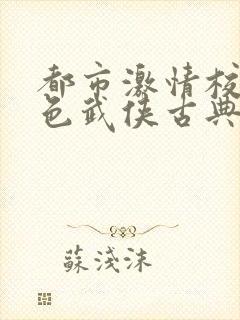 都市激情校
色武侠古典
蘇淺沫